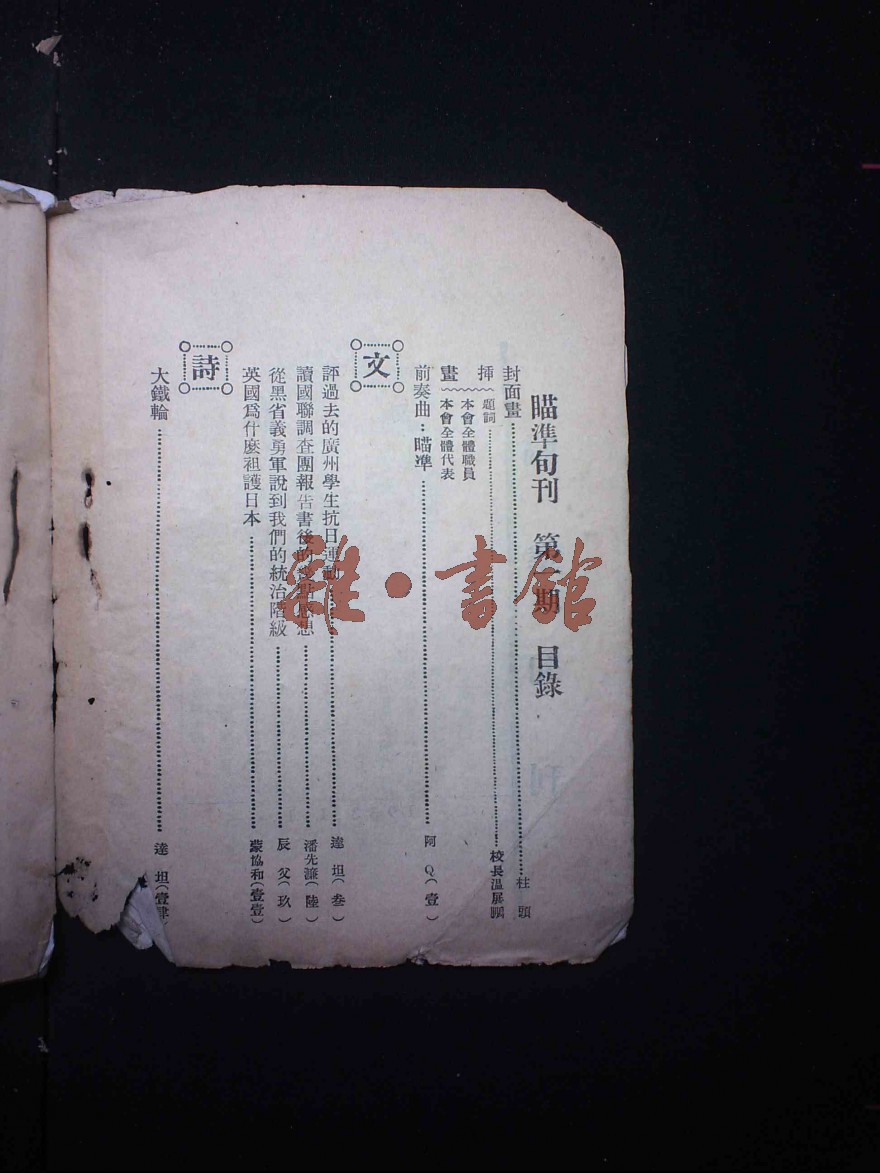 瞄準旬刊　第一期　目錄
封面畫……柱頭
插畫
題詞……校長溫展鵬
本會全體職員
本會全體代表
前奏曲：瞄準……阿Q（壹）
文
評過去的廣州學生抗日運動……達坦（叁）
讀國聯調查團報告書後的幾點感想……潘先濂（陸）
從黑省義勇軍說到我們的統治階級……辰父（玖）
英國爲什麽袒護日本……蒙協和（壹壹）
詩
大鐵輪……達坦（壹肆）
雜·書館